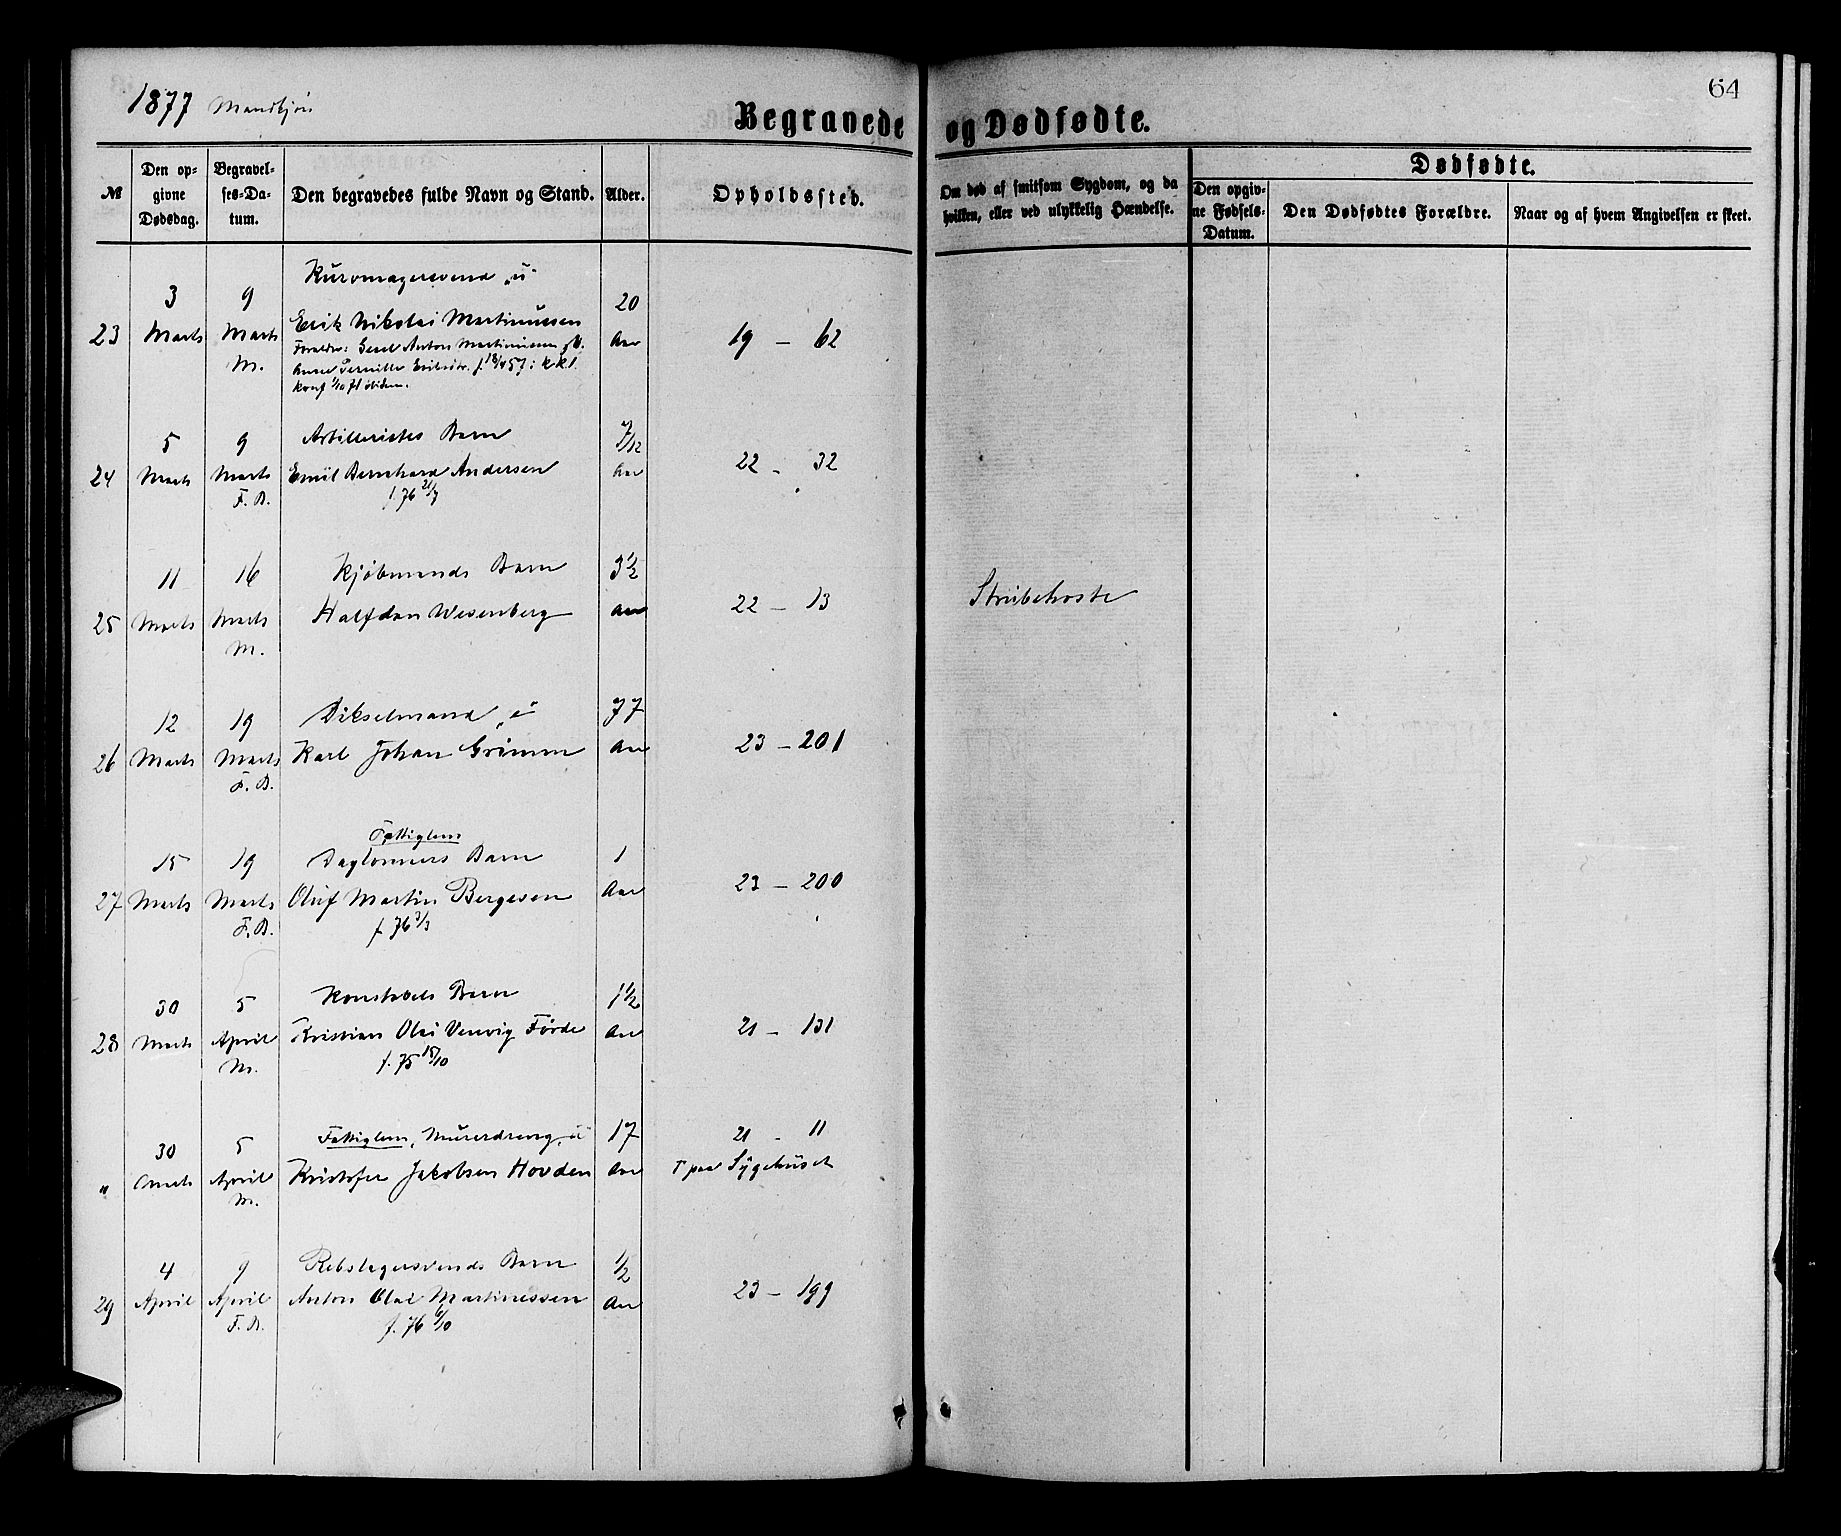 1877 Mandkjøn
64
Begravede og Dødfødte.
№
Den op-
givne
Dødsdag.
Begravel-
ses-Da-
tum.
Den begravedes fulde Navn og Stand.
Alder.
Opholdssted.
Om død af smitsom Sygdom, og da
hvilken, eller ved ulykkelig Hændelse.
Dødfødte.
Den opgiv-
ne Fødsels-
Datum.
Den Dødfødtes Forældre.
Naar og af hvem Angivelsen er skeet.
23
3
Marts
9
Marts
M.
Erik Nikolai Martinussen
Forældre: Anton Martinussen
Anne Pernille f. 18/4 57
20
Aar
19 - 62
24
5
Marts
9
Marts
F. B.
Artilleristes Barn
Emil Bernhard Andersen
f. 76 21/7
7/12
Aar
22 - 32
25
11
Marts
16
Marts
M.
Kjøbmands Barn
Halfdan Wesenberg
3 1/2
Aar
22 - 13
Strubehoste
26
12
Marts
19
Marts
F. B.
Dikselmand „u
Karl Johan Grimm
77
Aar
23 - 201
27
15
Marts
19
Marts
F. B.
Fattiglem
Daglønners Barn
Oluf Martin Bergesen
f. 76 3/3
1
Aar
23 - 200
28
30
Marts
5
April
M.
Konstabels Barn
Kristian Olai Venevig Førde
f. 75 15/10
1 1/2
Aar
21 - 131
"
30
Marts
5
April
M.
Fattiglem, Murerdreng, u
Kristofer Jakobsen Hovden
17
Aar
21 - 11
† paa Sygehuset
29
4
April
9
April
F. B.
Rebslagersvends Barn
Anton Olai Martinussen
f. 76 6/10
1/2
Aar
23 - 199